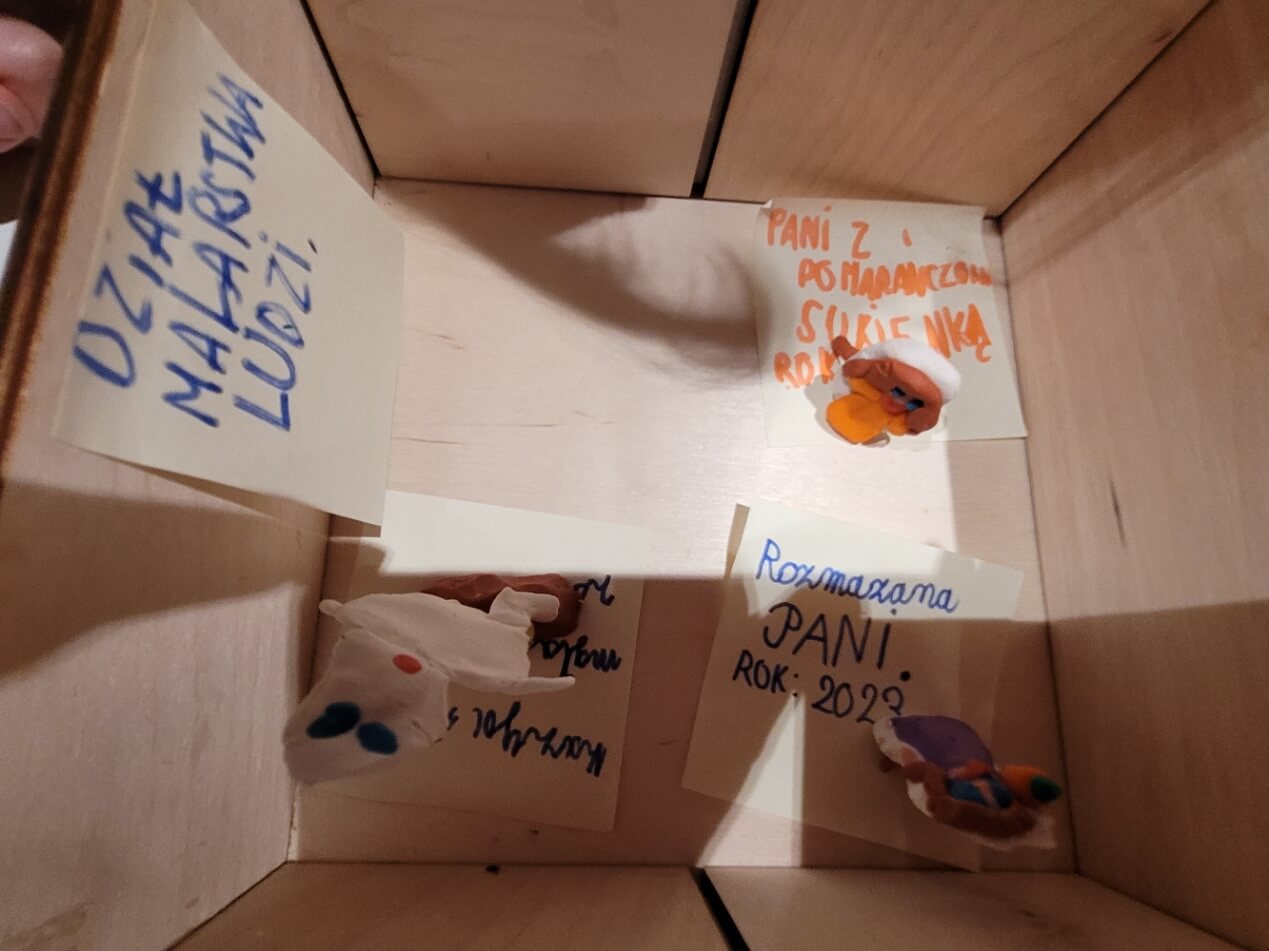 DZIAŁ
MALARSTWA
LUDZI.
PANI Z
POMARAŃCZOWĄ
SUKIENKĄ
ROK
Rozmazana
PANI.
ROK: 2023